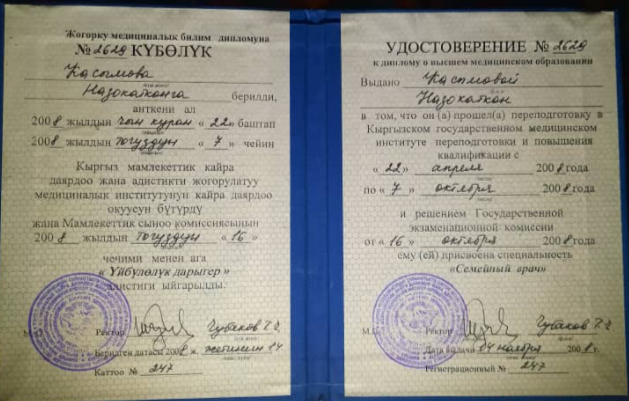 Жогорку медициналык билим дипломуна
№ 2629 КҮБӨЛҮК
Касымова
Назокатконга берилди,
анткени ал
2008 жылдын чын куран « 22» баштап
2008 жылдын тогуздун « 7 » чейин
Кыргыз мамлекеттик кайра
даярдоо жана адистикти жогорулатуу
медициналык институтунун кайра даярдоо
окуусун бүтүрдү
жана Мамлекеттик сыноо комиссиясынын
2008 жылдын тогуздун «16 »
чечими менен ага
« Үйбүлөлүк дарыгер »
адистиги ыйгарылды.
Ректор
Берилген датасы 2008 ж. жетинин 04
Каттоо № 247
УДОСТОВЕРЕНИЕ № 2629
к диплому о высшем медицинском образовании
Выдано Касымовой
Назокаткон
в том, что он (а) прошел(а) переподготовку в
Кыргызском государственном медицинском
институте переподготовки и повышения
квалификации с
« 22» апреля 2008 года
по « 7 » октября 2008 года
и решением Государственной
экзаменационной комиссии
от «16 » октября 2008 года
ему (ей) присвоена специальность
«Семейный врач»
М.П. Ректор
Дата выдачи 04 ноября 2008 г.
Регистрационный № 247